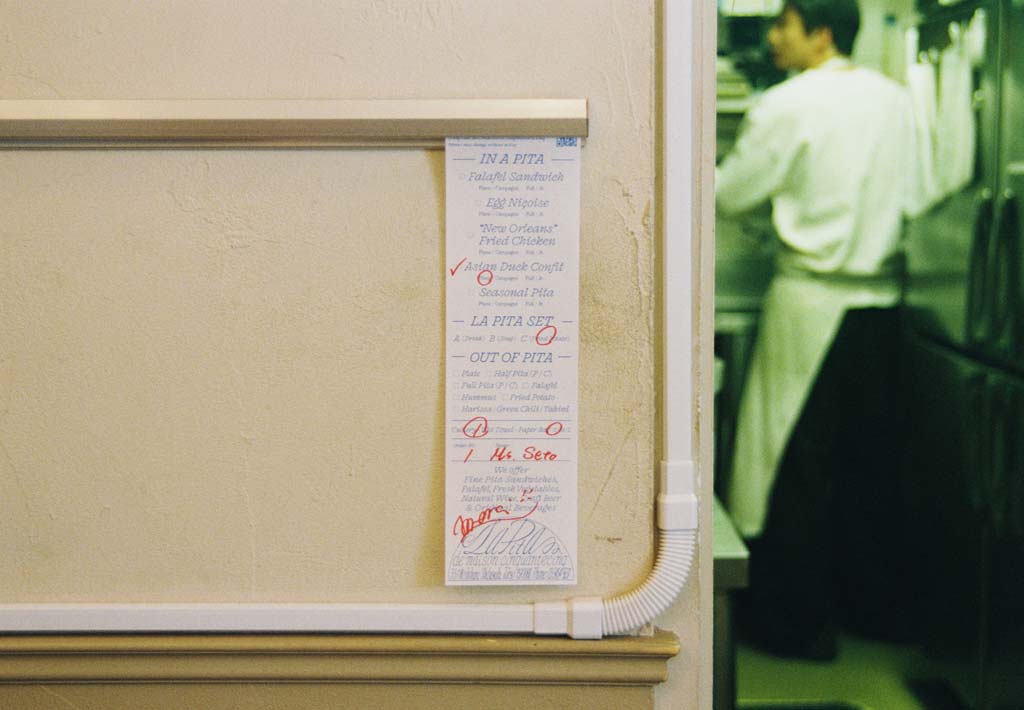 IN A PITA
Falafel Sandwich
Plane / Campagne Full / ½
Egg Niçoise
Plane / Campagne Full / ½
"New Orleans"
Fried Chicken
Plane / Campagne Full / ½
✓ Asian Duck Confit
Campagne Full / ½
Seasonal Pita
Plane / Campagne Full / ½
LA PITA SET
A (Drink) B (Soup) C
OUT OF PITA
Plate Half Pita (P / C)
Full Pita (P / C) Falafel
Hummus Fried Potato
Harissa / Green Chili / Tahini
Towel - Paper
1 Ms. Seto
We offer
Fine Pita Sandwiches,
Falafel, Fresh Vegetables,
Natural Wine, Craft Beer
& Original Beverages
La Pita
de maison cinquantecinq